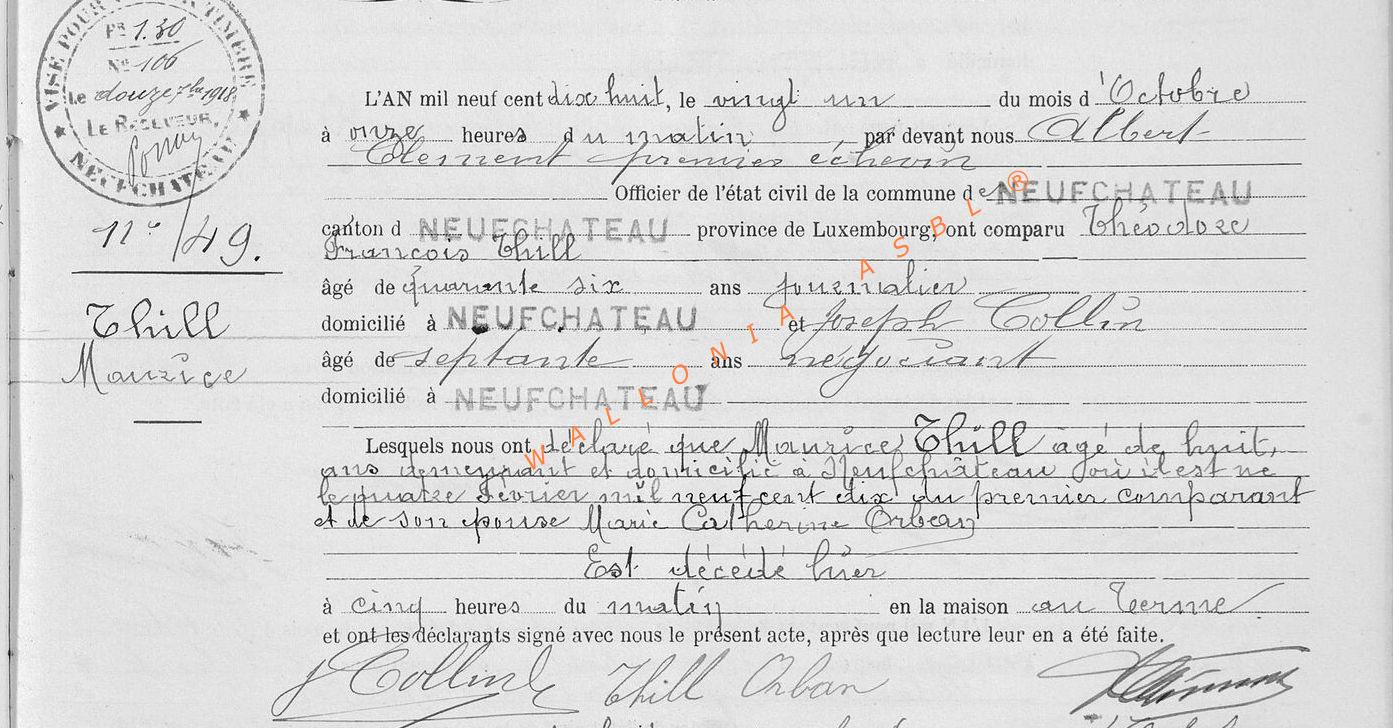 VISÉ POUR TIMBRE
Fr 1.30
No 106
Le douze 7bre 1918
LE RECEVEUR,
NEUFCHATEAU
L'AN mil neuf cent dix huit, le vingt un du mois d'Octobre
à onze heures du matin par devant nous Albert
Clement premier échevin
Officier de l'état civil de la commune de NEUFCHATEAU
No 49.
canton d NEUFCHATEAU province de Luxembourg, ont comparu Théodore
François Thill
âgé de quarante six ans journalier
Thill
Maurice
domicilié à NEUFCHATEAU et Joseph Collin
âgé de septante ans négociant
domicilié à NEUFCHATEAU
WALLONIA ASBL ®
Lesquels nous ont déclaré que Maurice Thill âgé de huit,
ans demeurant et domicilié à Neufchâteau où il est né
le quatre Février mil neuf cent dix du premier comparant
et de son épouse Marie Catherine Orban
Est décédé hier
à cinq heures du matin en la maison au Terme
et ont les déclarants signé avec nous le présent acte, après que lecture leur en a été faite.
J Collin Thill Orban